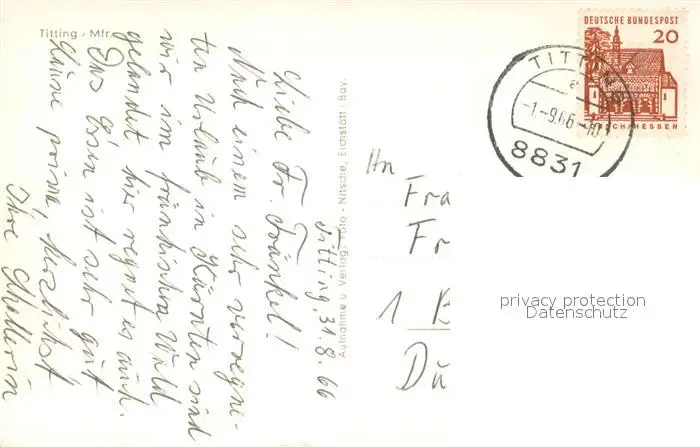 Titting - Mfr.
Titting, 31.8.66
Liebe Fr. Fränkel!
Nach einem sehr verregne-
ten Urlaub in Kärnten sind
wir im fränkischen Wald
gelandet hier regnet es auch.
Das Essen ist sehr gut
Häuse prima, herzlichst
Ihre
Aufnahme u. Verlag: Foto - Nitsche, Eichstätt / Bay.
DEUTSCHE BUNDESPOST
20
LORSCH/HESSEN
TITTING
a
-1.-9.66-10
8831
An
Fra
Fr
1 B
Du
privacy protection
Datenschutz